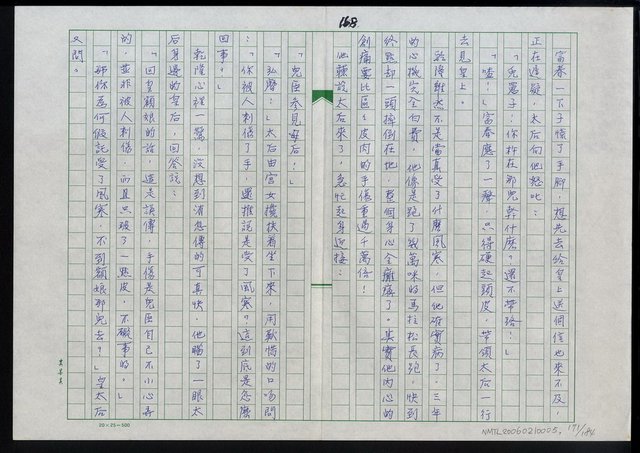 168
富春一下子慌了手腳，想先去給皇上送個信也來不及，
正在遲疑，太后向他怒叱：
「兔羔子！你杵在那兒幹什麼？還不帶路！」
「喳！」富春應了一聲，只得硬起頭皮，帶領太后一行
去見皇上。
乾隆雖然不是當真受了什麼風寒，但他確實病了，三年
的心機完全白費，他像是跑了幾萬咪的馬拉松長跑，快到
終點却一頭摔倒在地，整個身心全癱瘓了。其實他內心的
創痛要比區區皮肉的手傷重過千萬倍！
他聽說太后來了，急忙起身迎接：
「兒臣參見母后！」
「弘曆！」太后由宮女攙扶着坐下來，用歎惜的口吻問
：「你被人刺傷了手，還推說是受了風寒？這到底是怎麼
回事？」
乾隆心裡一驚，沒想到消息傳的可真快，他瞄了一眼太
后身邊的皇后，回答說：
「回皇額娘的話，這是誤傳，手傷是兒臣自己不小心弄
的，並非被人刺傷，而且只破了一點皮，不礙事的。」
「那你為何假託受了風寒，不到額娘那兒去？」皇太后
又問。
20×25=500
NMTL20060210005, 171/184